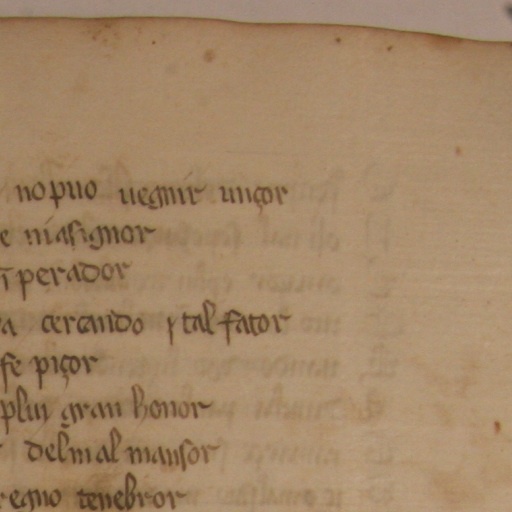 no puo uegnir unçor
e nia signor
ī perador
a cercando ı tal fator
fe piçor
plui gran honor
del mal mansor
regno tenebror